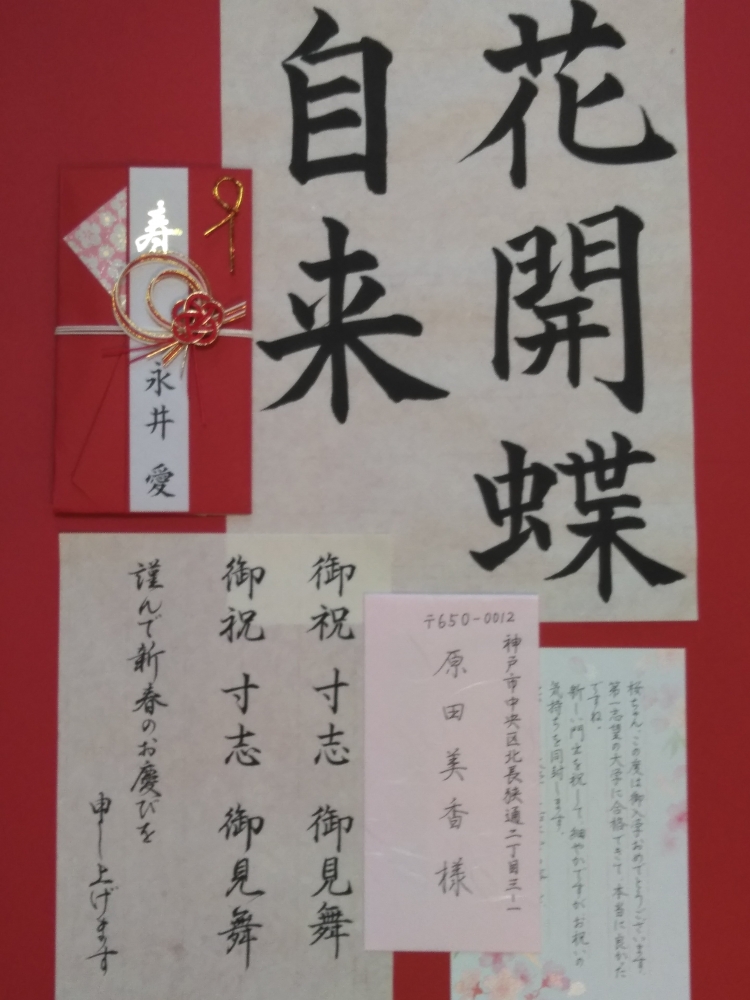 花開蝶
自来
寿
永井 愛
御祝 寸志 御見舞
御祝 寸志 御見舞
謹んで新春のお慶びを
申し上げます
〒650-0012
神戸市中央区北長狭通二丁目三-一
原田美香様
桜ちゃん、この度は御入学おめでとうございます。
第一志望の大学に合格できて、本当に良かった
ですね。
新しい門出を祝して、細やかですがお祝いの
気持ちを同封します。